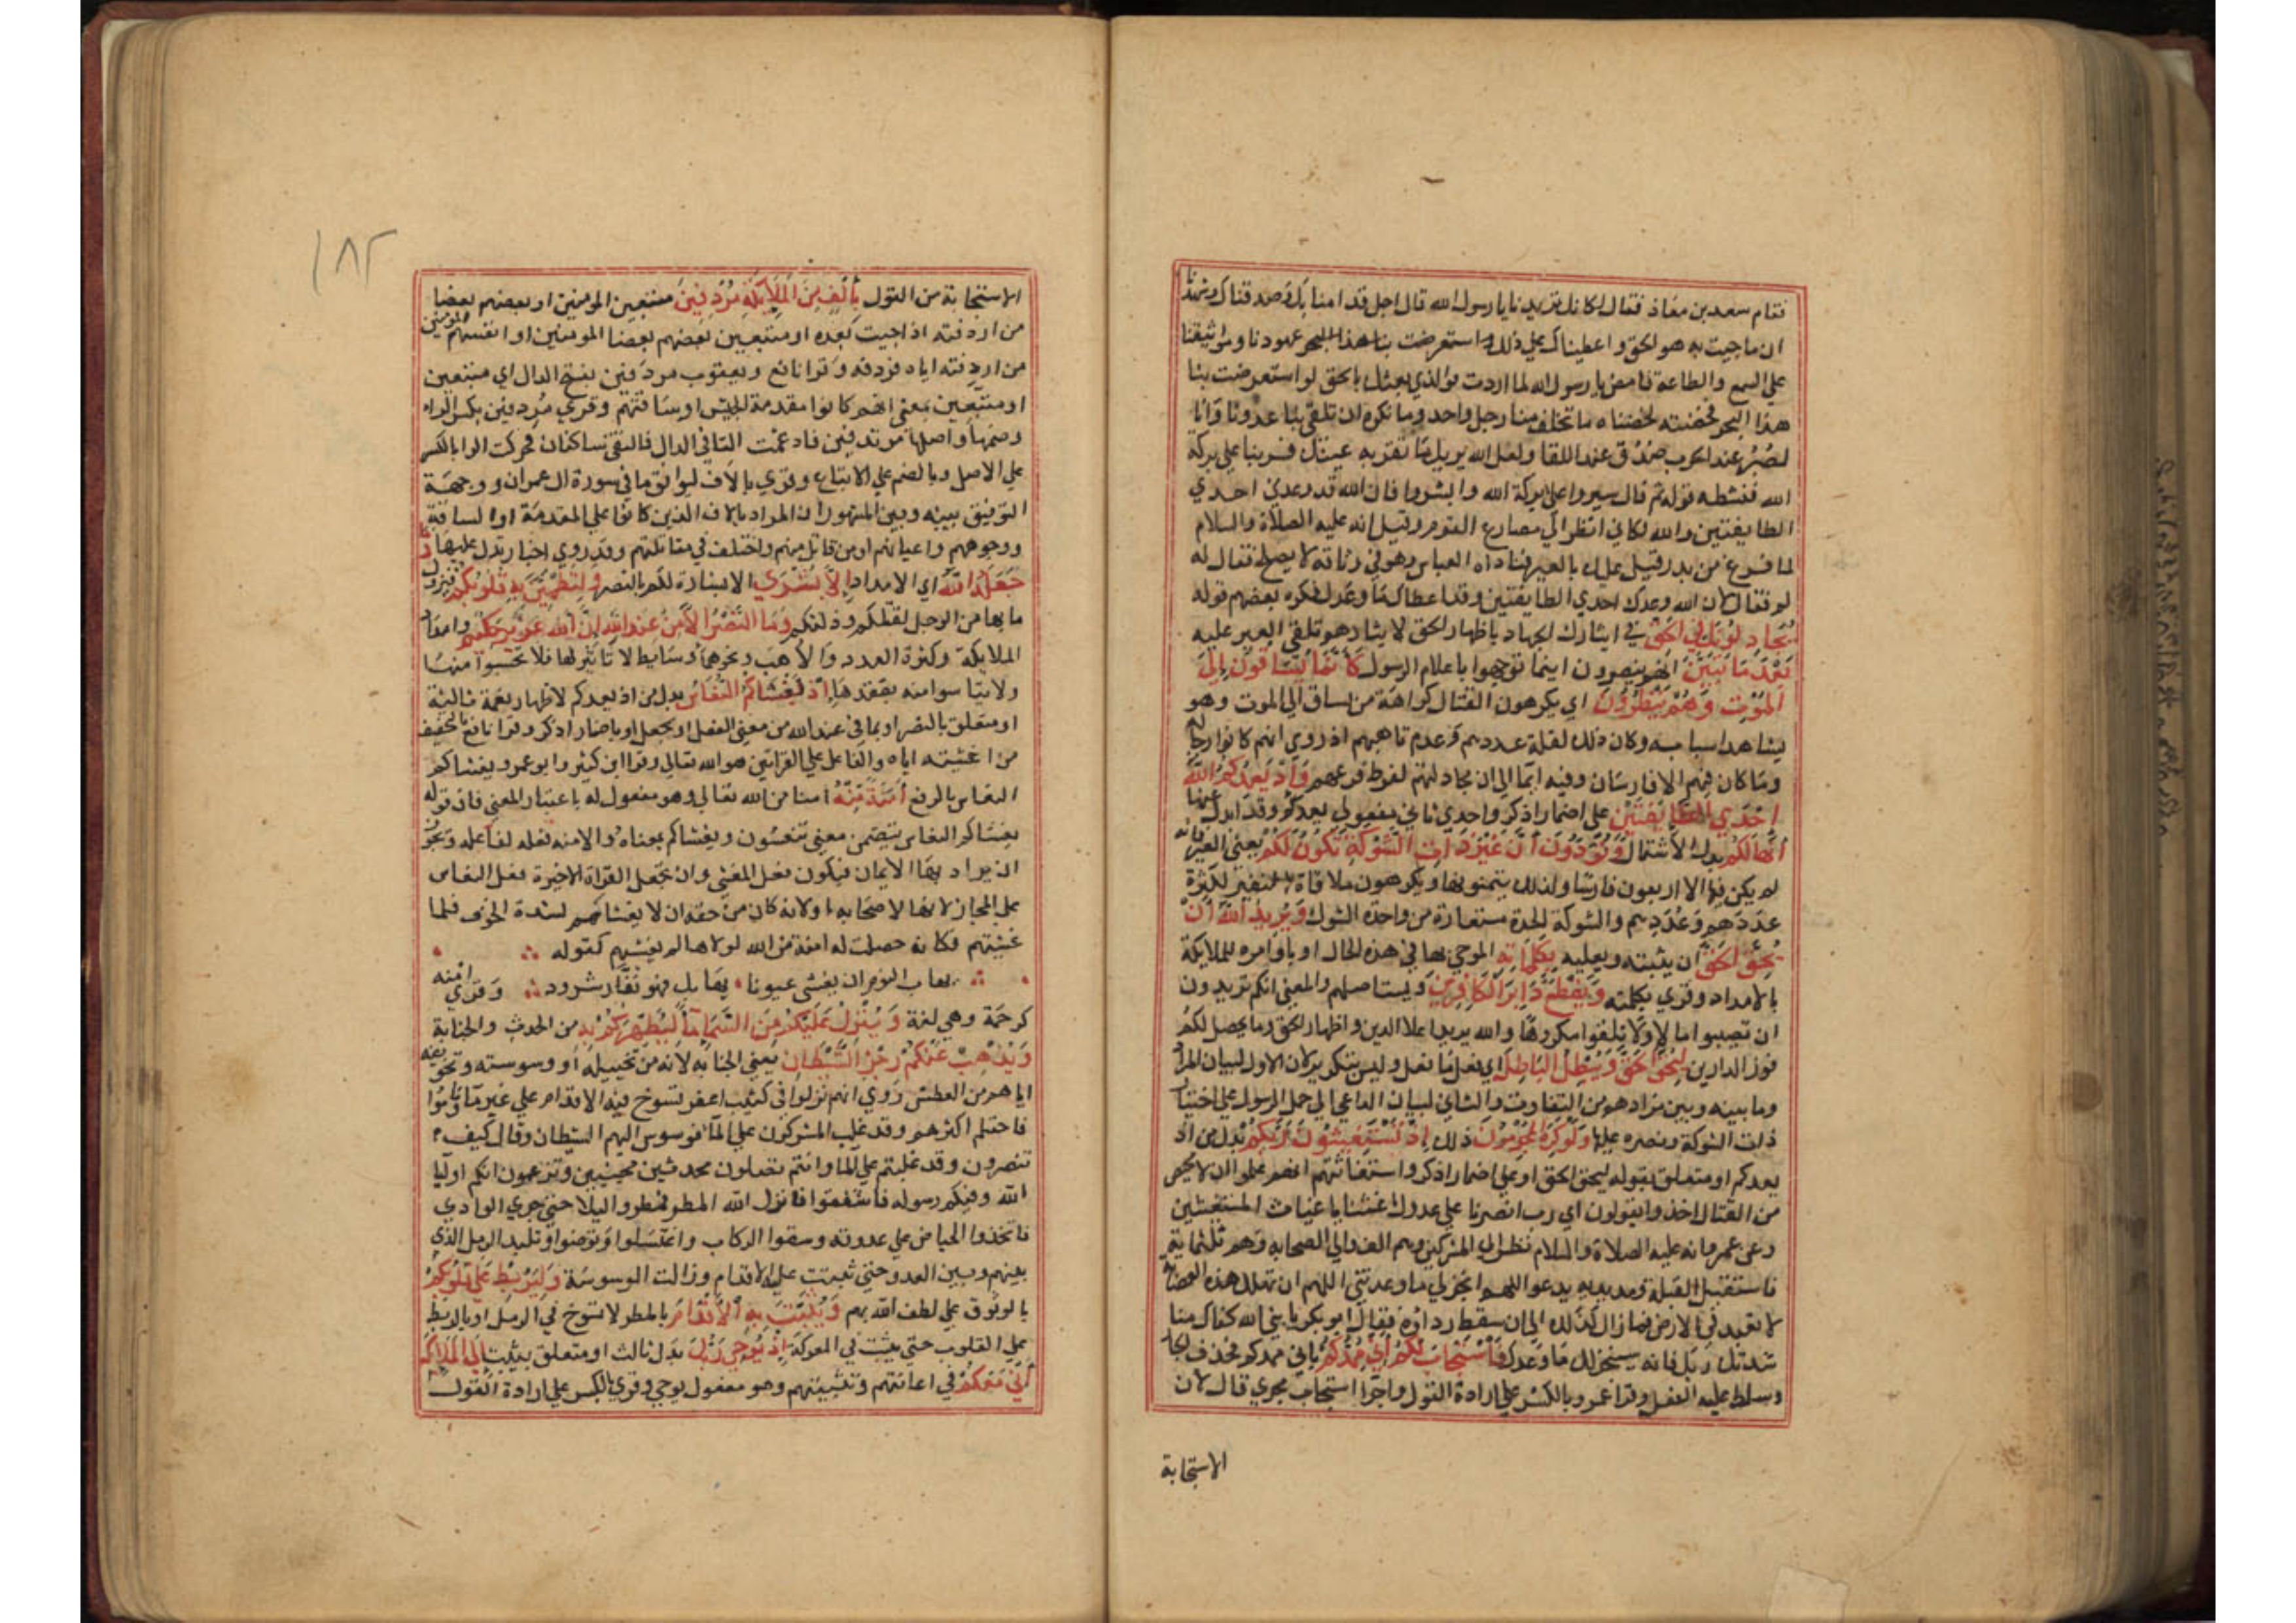 فقام سعد بن معاذ فقال لكانك تريدنا يا رسول الله قال اجل قد امنا بك وصدقناك وشهدنا
ان ما جيت به هو الحق واعطيناك على ذلك عهودنا ومواثيقنا
على السمع والطاعة فامض يا رسول الله لما اردت فوالذي بعثك بالحق لو استعرضت بنا
هذا البحر فخضته لخضناه ما تخلف منا رجل واحد وما نكره ان تلقى بنا عدونا وانا
لصبر عند الحرب صدق عند اللقا ولعل الله يريك منا ما تقر به عينك فسر بنا على بركة
الله فنشطه قوله ثم قال سيروا على بركة الله وابشروا فان الله قد وعدني احدي
الطايفتين والله لكاني انظر الي مصارع القوم وقيل انه عليه الصلاة والسلام
لما فرغ من بدر قيل عليك بالعير فناداه العباس وهو في وثاقه لا يصلح فقال له
لم فقال لان الله وعدك احدي الطايفتين وقد اعطاك ما وعدك فكره بعضهم قوله
يُجَادِلُونَكَ فِي الحَقِّ في ايثارك الجهاد باظهار الحق لايثارهم تلقي العير عليه
بَعْدَ مَا تَبَيَّنَ انهم ينصرون اينما توجهوا باعلام الرسول كَأَنَّمَا يُسَاقُونَ إِلَى
الْمَوْتِ وَهُمْ يَنْظُرُونَ اي يكرهون القتال كراهة من يساق الي الموت وهو
يشاهد اسبابه وكان ذلك لقلة عددهم وعدم تاهبهم اذ روي انهم كانوا رجالة
وما كان فيهم الا فارسان وفيه ايما الي ان مجادلتهم لفرط فزعهم وَإِذْ يَعِدُكُمُ اللَّهُ
إِحْدَي الطَّائِفَتَيْنِ على اضمار اذكر واحدي ثاني مفعولي يعدكم وقد ابدل عنها
أَنَّهَا لَكُمْ بدل الاشتمال وَتَوَدُّونَ أَنَّ غَيْرَ ذَاتِ الشَّوْكَةِ تَكُونُ لَكُمْ يعني العير فانه
لم يكن فيها الا اربعون فارسا ولذلك يتمنونها ويكرهون ملاقاة النفير لكثرة
عددهم وعُددهم والشوكة الحدة مستعارة من واحدة الشوك وَيُرِيدُ اللَّهُ أَنْ
يُحِقَّ الحَقَّ ان يثبته ويعليه بِكَلِمَاتِهِ الموحي بها في هذه الحال او باوامره للملايكة
بالامداد وقري بكلمته وَيَقْطَعَ دَابِرَ الْكَافِرِينَ ويستاصلهم والمعني انكم تريدون
ان تصيبوا مالا ولا تلقوا مكروها والله يريد اعلا الدين واظهار الحق وما يحصل لكم
فوز الدارين لِيُحِقَّ الحَقَّ وَيُبْطِلَ الْبَاطِلَ اي فعل ما فعل وليس بتكرير لان الاول لبيان المراد
وما بينه وبين مرادهم من التفاوت والثاني لبيان الداعي الي حمل الرسول على اختيار
ذات الشوكة ونصره عليها وَلَوْ كَرِهَ الْمُجْرِمُونَ ذلك إِذْ تَسْتَغِيثُونَ رَبَّكُمْ بدل من اذ
يعدكم او متعلق بقوله ليحق الحق او على اضمار اذكر واستغاثتهم انهم علموا ان لا محيص
من القتال اخذوا يقولون اي رب انصرنا على عدوك اغثنا يا غياث المستغيثين
وعن عمر انه عليه الصلاة والسلام نظر الي المشركين وهم الف والي اصحابه وهم ثلثماية
فاستقبل القبلة ومد يديه يدعو اللهم انجز لي ما وعدتني اللهم ان تهلك هذه العصابة
لا تعبد في الارض فما زال كذلك الي ان سقط رداوه فقال ابو بكر يا نبي الله كفاك مناشدتك
ربك فانه سينجز لك ما وعدك فَاسْتَجَابَ لَكُمْ أَنِّي مُمِدُّكُمْ باني ممدكم فحذف الجار
وسلط عليه الفعل وقرا ابو عمرو بالكسر على ارادة القول واجرا استجاب مجري قال لان
الاستجابة
١٨٢
الاستجابة من القول بِأَلْفٍ مِنَ الْمَلَائِكَةِ مُرْدِفِينَ متبعين المومنين او بعضهم بعضا
من اردفته اذا جيت بعده او متبعين بعضهم بعضا المومنين او انفسهم المومنين
من اردفته اياه فردفه وقرا نافع ويعقوب مردفين بفتح الدال اي متبعين
او متبعين بمعني انهم كانوا مقدمة الجيش او ساقتهم وقري مردفين بكسر الراء
وضمها واصله مرتدفين فادغمت التا في الدال فالتقي ساكنان فحركت الرا بالكسر
على الاصل وبالضم على الاتباع وقري بالاف ليوافق ما في سورة ال عمران ووجه
التوفيق بينه وبين المشهور ان المراد بالالف الذين كانوا على المقدمة او الساقة
ووجوههم واعيانهم او من قاتل منهم واختلف في مقاتلتهم وقد روي اخبار تدل عليها وما
جَعَلَهُ اللَّهُ اي الامداد إِلَّا بُشْرَي الا بشارة لكم بالنصر وَلِتَطْمَئِنَّ بِهِ قُلُوبُكُمْ فيزول
ما بها من الوجل لقلتكم وذلتكم وَمَا النَّصْرُ إِلَّا مِنْ عِنْدِ اللَّهِ إِنَّ اللَّهَ عَزِيزٌ حَكِيمٌ وامداد
الملايكة وكثرة العدد والاهب ونحوهما وسايط لا تاثير لها فلا تحسبوا منها
ولا تياسوا منه بفقدها إِذْ يُغْشِيكُمُ النُّعَاسَ بدل من اذ يعدكم لاظهار نعمة ثالثة
او متعلق بالنصر او بما في عند الله من معني الفعل او بجعل او باضمار اذكر وقرا نافع بالتخفيف
من اغشيته اياه والفاعل على القراتين هو الله تعالي وقرا ابن كثير وابو عمرو يغشاكم
النعاس بالرفع أَمَنَةً مِنْهُ امنا من الله تعالي وهو مفعول له باعتبار المعني فان قوله
يغشاكم النعاس يتضمن معني تنعسون ويغشاكم بمعناه والامنة فعل لفاعله ويجوز
ان يراد بها الايمان فيكون فعل المغشي وان تجعل القراة الاخيرة فعل النعاس
على المجاز لانها لاصحابه او لانه كان من حقه ان لا يغشاهم لشدة الخوف فلما
غشيهم فكانه حصلت له امنة من الله لولاها لم يغشهم كقوله
يهاب النوم ان يغشي عيونا يهابك فهو نفار شرود وقري امنة
كرحمة وهي لغة وَيُنَزِّلُ عَلَيْكُمْ مِنَ السَّمَاءِ مَاءً لِيُطَهِّرَكُمْ بِهِ من الحدث والجنابة
وَيُذْهِبَ عَنْكُمْ رِجْزَ الشَّيْطَانِ يعني الجنابة لانه من تخييله او وسوسته وتخويفه
اياهم من العطش روي انهم نزلوا في كثيب اعفر تسوخ فيه الاقدام على غير ما وناموا
فاحتلم اكثرهم وقد غلب المشركون على الما فوسوس اليهم الشيطان وقال كيف
تنصرون وقد غلبتم على الما وانتم تصلون محدثين مجنبين وتزعمون انكم اوليا
الله وفيكم رسوله فاشفقوا فانزل الله المطر فمطروا ليلا حتي جري الوادي
فاتخذوا الحياض على عدوته وسقوا الركاب واغتسلوا وتوضوا وتلبد الرمل الذي
بينهم وبين العدو حتي ثبتت عليه الاقدام وزالت الوسوسة وَلِيَرْبِطَ عَلَى قُلُوبِكُمْ
بالوثوق على لطف الله بهم وَيُثَبِّتَ بِهِ الْأَقْدَامَ بالمطر لا تسوخ في الرمل او بالربط
على القلوب حتي يثبت في المعركة إِذْ يُوحِي رَبُّكَ بدل ثالث او متعلق بيثبت إِلَى الْمَلَائِكَةِ
أَنِّي مَعَكُمْ في اعانتهم وتثبيتهم وهو مفعول يوحي وقري بالكسر على ارادة القول